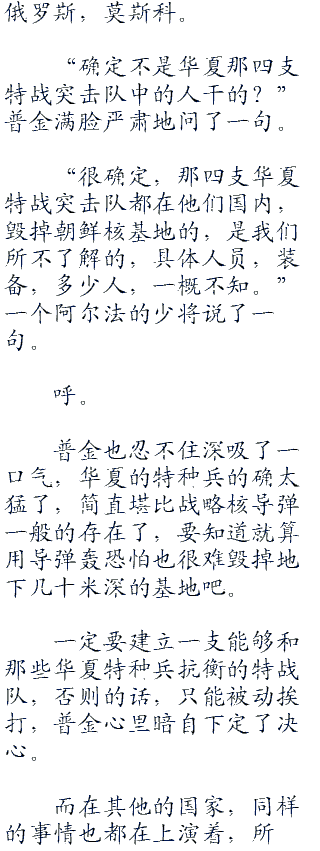 俄罗斯，莫斯科。
“确定不是华夏那四支
特战突击队中的人干的？”
普金满脸严肃地问了一句。
“很确定，那四支华夏
特战突击队都在他们国内，
毁掉朝鲜核基地的，是我们
所不了解的，具体人员，装
备，多少人，一概不知。”
一个阿尔法的少将说了一
句。
呼。
普金也忍不住深吸了一
口气，华夏的特种兵的确太
猛了，简直堪比战略核导弹
一般的存在了，要知道就算
用导弹轰恐怕也很难毁掉地
下几十米深的基地吧。
一定要建立一支能够和
那些华夏特种兵抗衡的特战
队，否则的话，只能被动挨
打，普金心里暗自下定了决
心。
而在其他的国家，同样
的事情也都在上演着，所